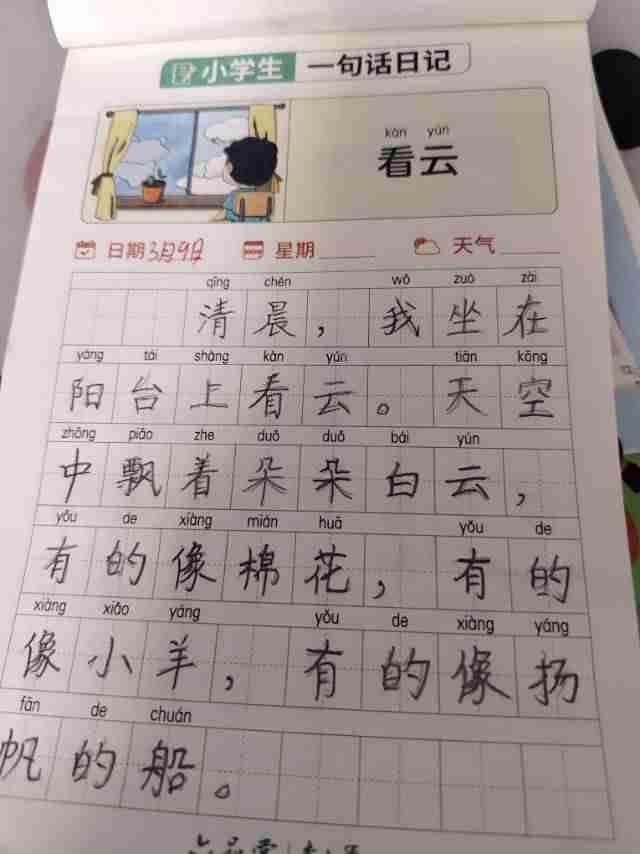 小学生 一句话日记
kàn yún
看云
日期3月9日 星期 天气
qīng chén wǒ zuò zài
清晨，我坐在
yáng tái shàng kàn yún tiān kōng
阳台上看云。天空
zhōng piāo zhe duǒ duǒ bái yún
中飘着朵朵白云，
yǒu de xiàng mián huā yǒu de
有的像棉花，有的
xiàng xiǎo yáng yǒu de xiàng yáng
像小羊，有的像扬
fān de chuán
帆的船。